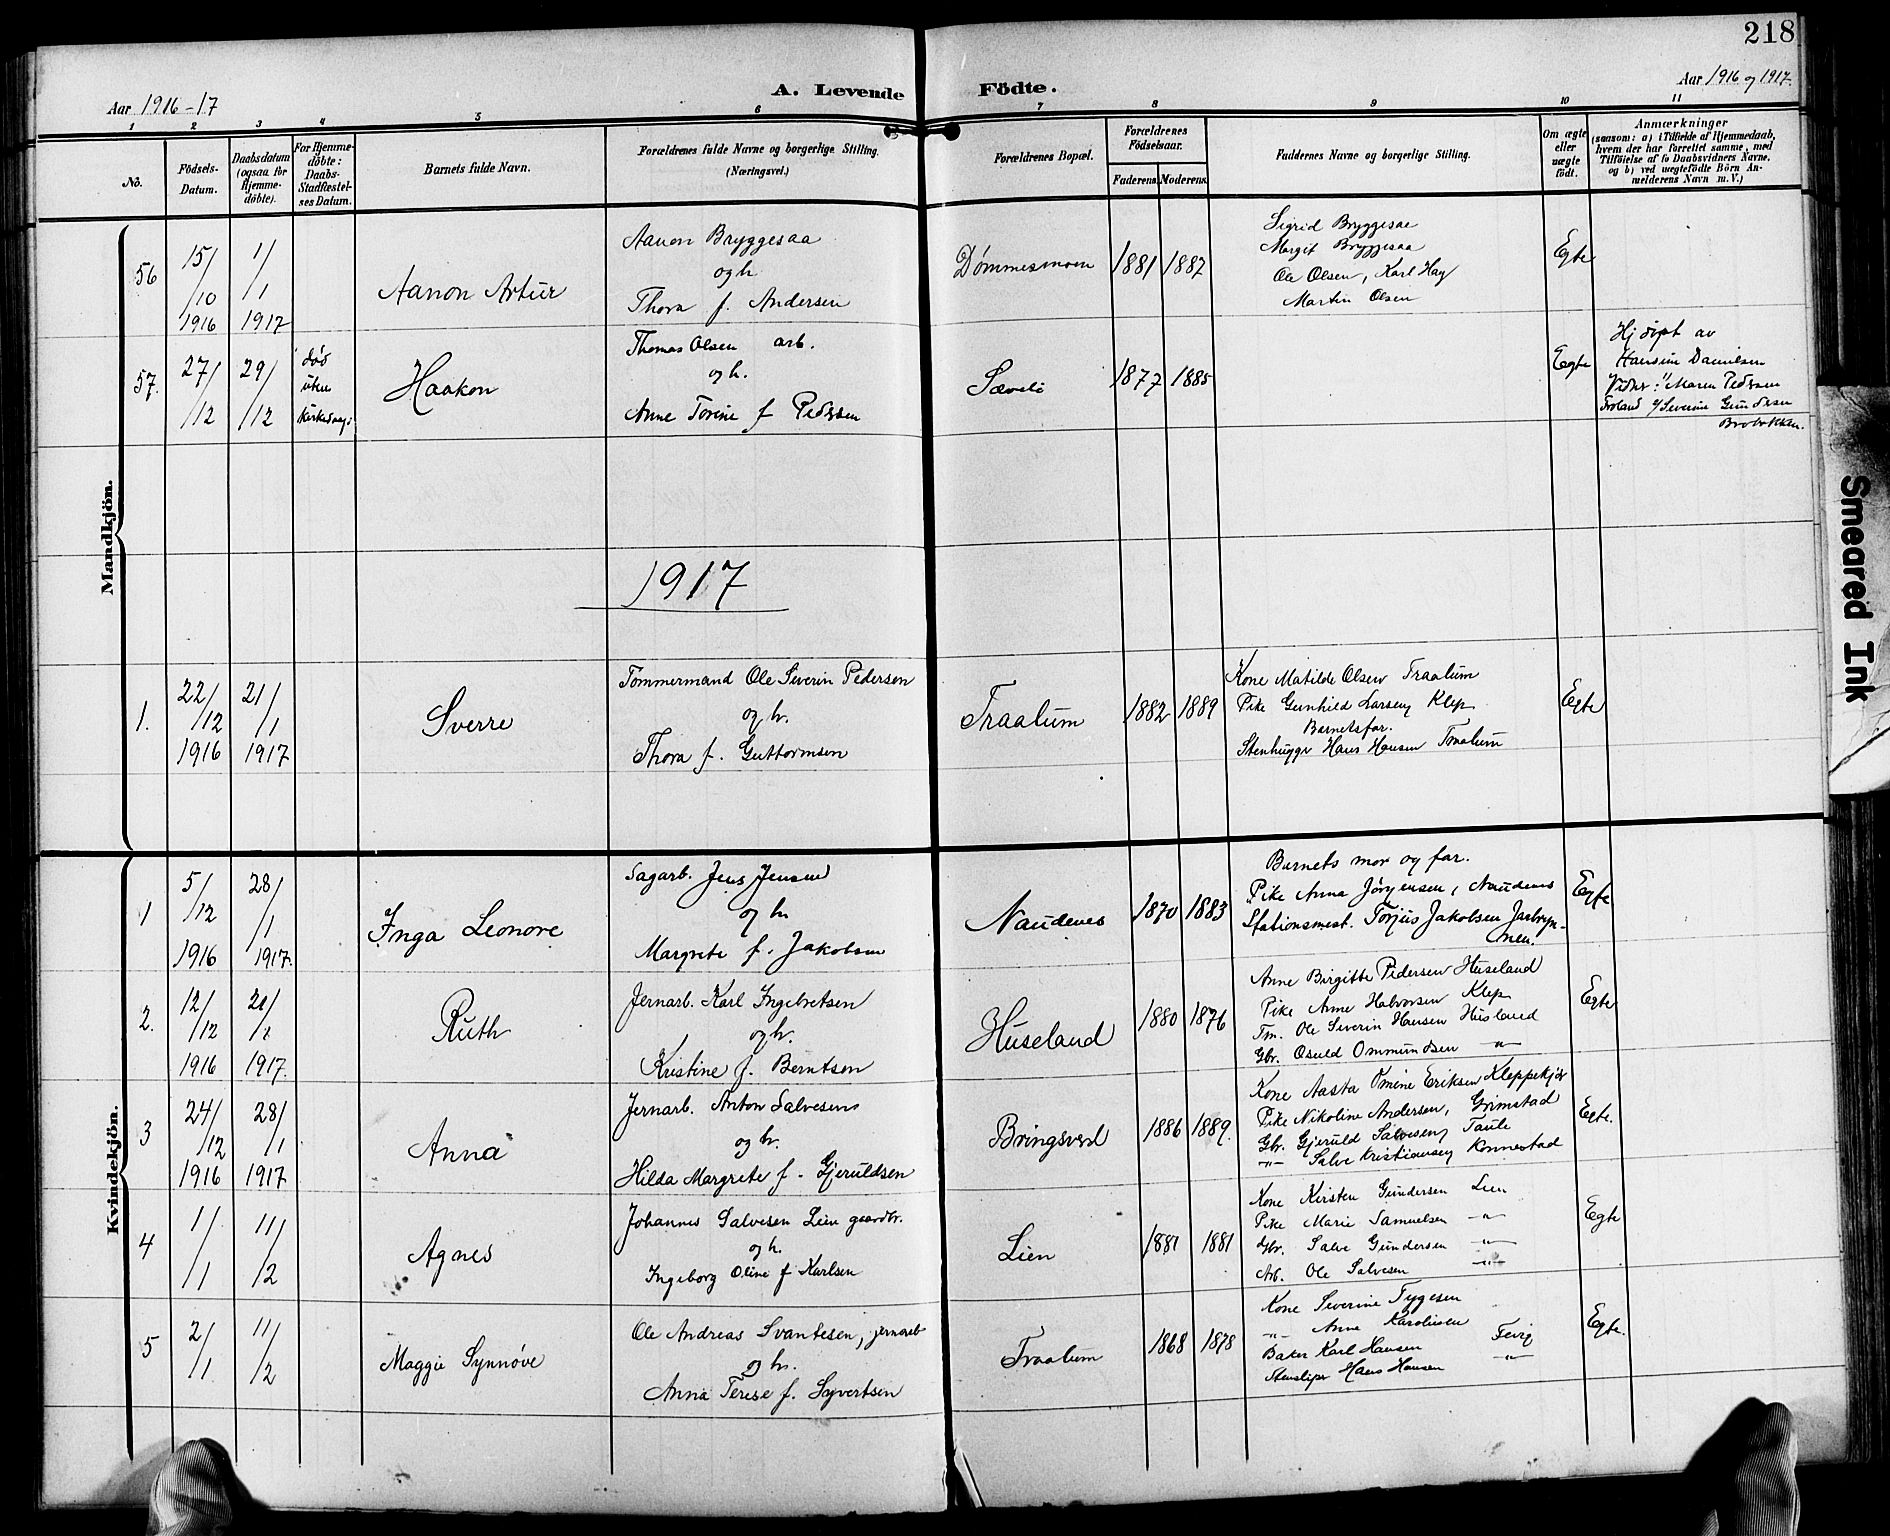 218
Aar 1916-17
A. Levende
Födte.
Aar 1916 og 1917.
1 2 3 4 5 6 7 8 9 10 11
No.
Födsels-
Datum.
Daabsdatum
(ogsaa for
Hjemme-
döbte).
For Hjemme-
döbte:
Daabs-
Stadfæstel-
ses Datum.
Barnets fulde Navn.
Forældrenes fulde Navne og borgerlige Stilling.
(Næringsvei.)
Forældrenes Bopæl.
Forældrenes
Födselsaar.
Faderens. Moderens.
Faddernes Navne og borgerlige Stilling.
Om ægte
eller
uægte
födt.
Anmærkninger
(saasom: a) i Tilfælde af Hjemmedaab,
hvem der har forrettet samme, med
Tilföielse af to Daabsvidners Navne,
og b) ved uægtefödte Börn An-
melderens Navn m. V.)
Mandkjön.
56
15/10 1916
1/1 1917
Aanon Artur
Aanon Bryggesaa
og h.
Thora f. Andersen
Dømmesmoen
1881 1887
Sigrid Bryggesaa
Margit Bryggesaa
Ole Olsen, Karl Hay
Martin Olsen
Egte
57.
27/12
29/12
død
uten
kirkedaap
Haakon
Thomas Olsen arb.
og h.
Anne Torine f Pedersen
Sæveli
1877 1885
Egte
Hj døpt av
Hansine Danielsen
Vidner: 1/ Maren Pedersen
Froland 2/ Severine Gundersen
Brobakken.
1917
1.
22/12 1916
21/1 1917
Sverre
Tømmermand Ole Severin Pedersen
og h.
Thora f. Guttormsen
Traalum
1882 1889
Kone Matilde Olsen Traalum
Pike Gunhild Larsen Klep
Barnetsfar.
Stenhugger Hans Hansen Traalum
Egte
Kvindekjön.
1
5/12 1916
28/1 1917.
Inga Leonore
Sagarb. Jens Jensen
og h
Margrete f. Jakobsen
Naudenes
1870 1883
Barnets mor og far.
Pike Anna Jørgensen, Naudenes
Stationsmest. Torjus Jakobsen Jarbryn-
nen.
Egte
2.
12/12 1916
21/1 1917.
Ruth
Jernarb. Karl Ingebretsen
og h.
Kristine f. Berntsen
Huseland
1880 1876
Anne Birgitte Pedersen Huseland
Pike Anne Halvorsen Klep
Tm. Ole Severin Hansen Husland
Gbr. Osuld Ommundsen -"-
Egte
3
24/12 1916
28/1 1917
Anna
Jernarb. Anton Salvesen
og h.
Hilda Margrete f. Gjeruldsen
Bringsverd
1886 1889.
Kone Aasta Omine Eriksen Kleppekjær
Pike Nikoline Andersen, Grimstad
Gbr. Gjeruld Salvesen, Taule
-"- Salve Kristiansen Konnestad
Egte.
4
1/1
11/2
Agnes
Johannes Salvesen Lien gaardbr.
og h.
Ingeborg Oline f Karlsen
Lien
1881 1881
Kone Kirsten Gundersen Lien
Pike Marie Samuelsen -"-
Gbr. Salve Gundersen -"-
Arb. Ole Salvesen -"-
Egte
5
2/1
11/2
Maggie Synnøve
Ole Andreas Svantesen, jernarb
og h.
Anna Terese f. Syvertsen
Traalum
1868 1878
Kone Severine Tygesen
-"- Anne Karolinsen
Baker Karl Hansen Fevig
Stensliper Hans Hansen -"-
Egte.
Smeared Ink